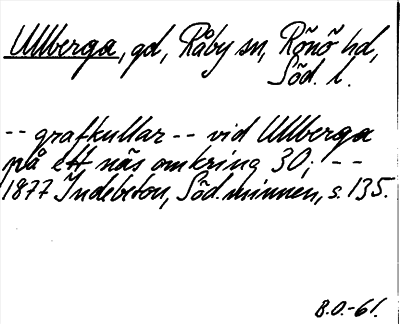 Ullberga, gd, Råby sn, Rönö hd,
Söd. l.
-- grafkullar -- vid Ullberga
på ett näs omkring 30; --
1877 Indebetou, Söd. minnen, s. 135.
B.O.-61.